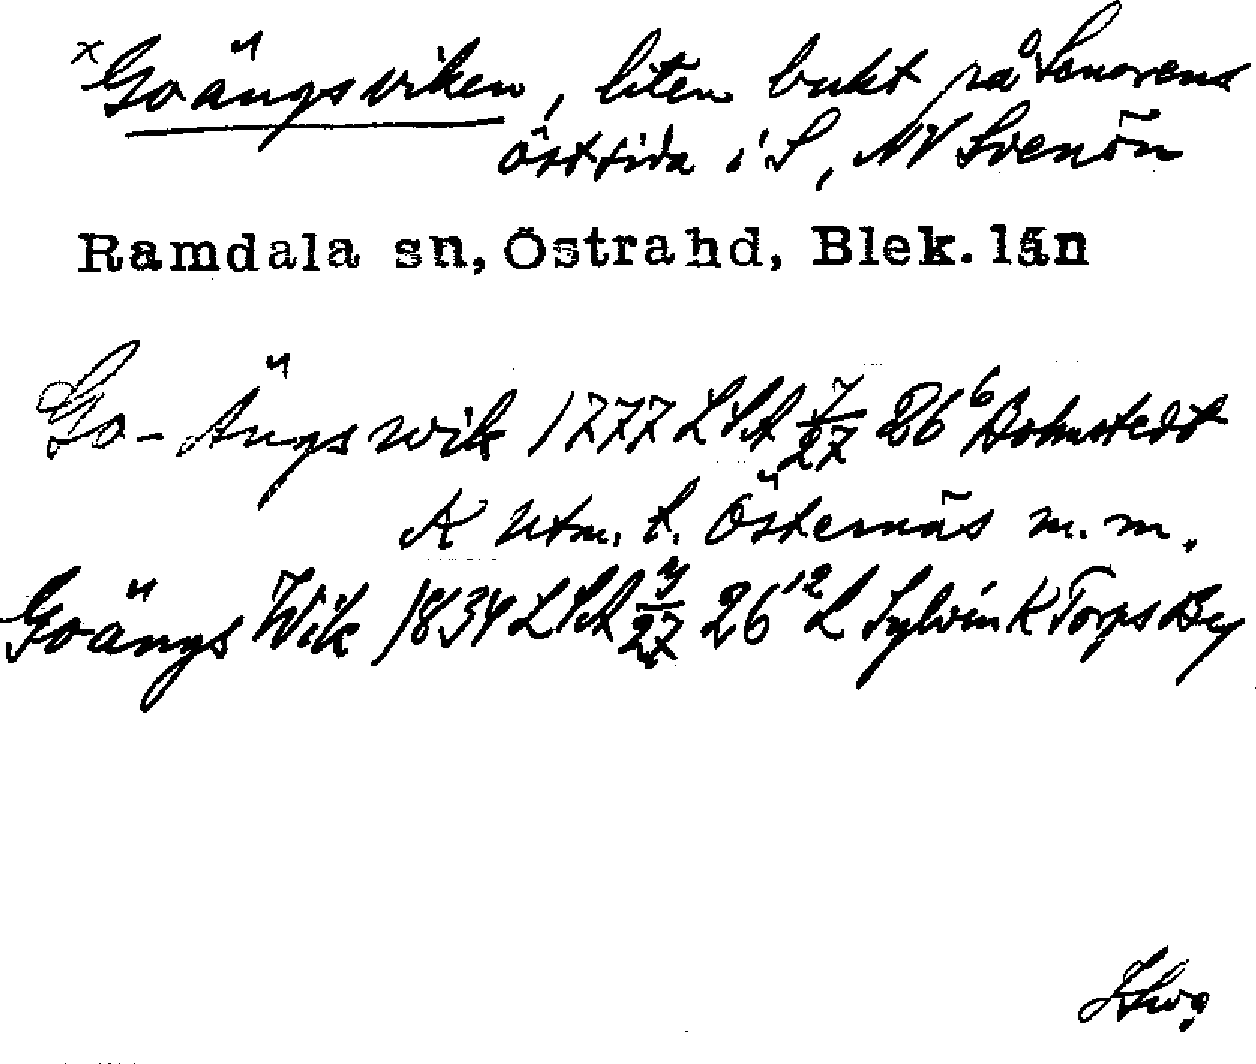 x Goängsviken, liten bukt på Senorens
östsida i S, NV Svenön
Ramdala sn, Östra hd, Blek. län
Go-Ängswik 1777 LSA 7/27 26⁶ Bohnstedt
K Utm. t. Östernäs m.m.
Goängs Wik 1834 LSA 7/27 26¹² L Sylvin K Torps By